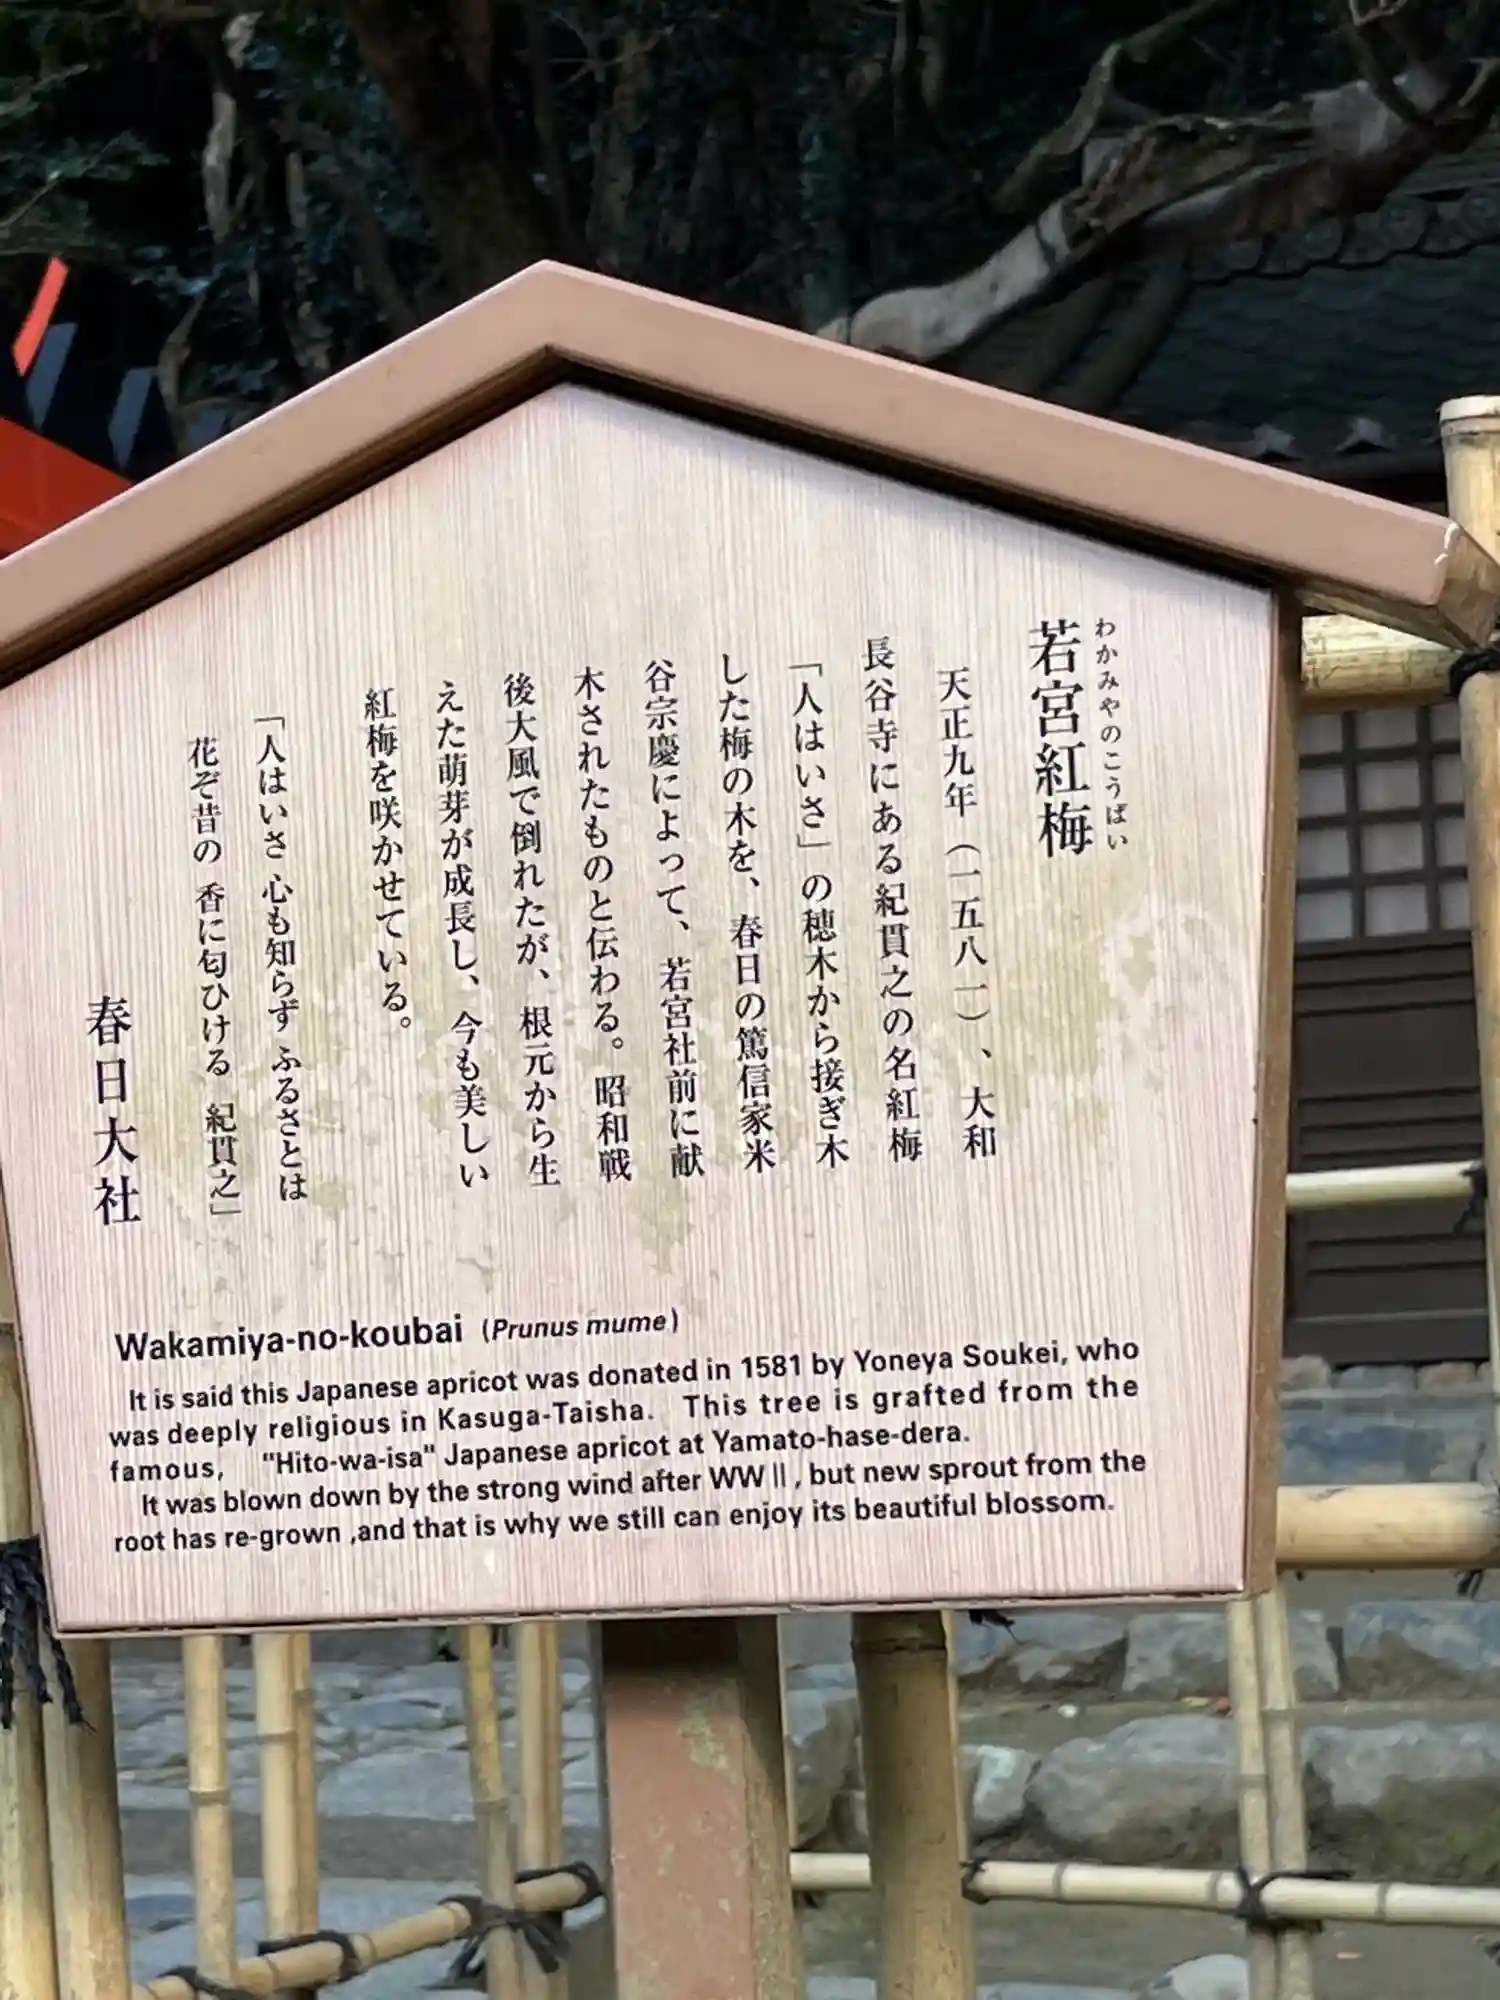 わかみやのこうばい
若宮紅梅
天正九年（一五八一）、大和
長谷寺にある紀貫之の名紅梅
「人はいさ」の穂木から接ぎ木
した梅の木を、春日の篤信家米
谷宗慶によって、若宮社前に献
木されたものと伝わる。昭和戦
後大風で倒れたが、根元から生
えた萌芽が成長し、今も美しい
紅梅を咲かせている。
「人はいさ 心も知らず ふるさとは
花ぞ昔の 香に匂ひける 紀貫之」
春日大社
Wakamiya-no-koubai (Prunus mume)
It is said this Japanese apricot was donated in 1581 by Yoneya Soukei, who
was deeply religious in Kasuga-Taisha. This tree is grafted from the
famous, "Hito-wa-isa" Japanese apricot at Yamato-hase-dera.
It was blown down by the strong wind after WWⅡ, but new sprout from the
root has re-grown ,and that is why we still can enjoy its beautiful blossom.